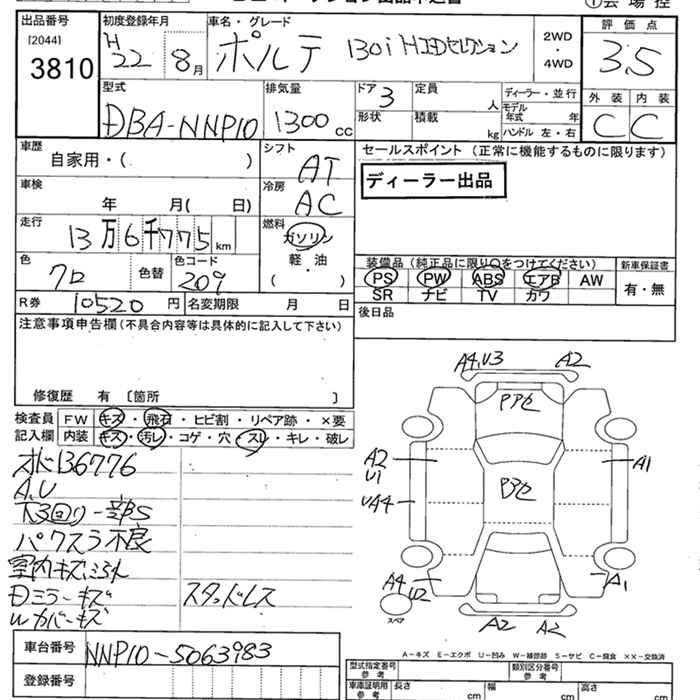 出品番号
[2044]
3810
初度登録年月
H22 8月
車名・グレード
ポルテ 130i HIDセレクション
2WD
・
4WD
評価点
3.5
外装 内装
C C
型式
DBA-NNP10
排気量
1300 cc
ドア 3
形状
定員 人
積載 kg
ディーラー・並行
モデル年式 年
ハンドル 左・右
車歴
自家用・( )
シフト
AT
セールスポイント (正常に機能するものに限ります)
ディーラー出品
車検
年 月( 日)
冷房
AC
走行
13万6千775km
燃料
ガソリン
軽・油
( ・ )
色
クロ
色替
色コード
209
装備品 (純正品に限り○をつけてください)
PS PW ABS エアB AW
SR ナビ TV カワ
新車保証書
有・無
R券 10520円
名変期限 月 日
後日品
注意事項申告欄(不具合内容等は具体的に記入して下さい)
修復歴 有 〔箇所 〕
検査員
記入欄
FW キズ・飛石・ヒビ割・リペア跡・×要
内装 キズ・汚レ・コゲ・穴・スレ・キレ・破レ
オド136776
A.U
下回り一部S
パワスラ不良
室内キズ
Dミラーキズ
Wカバーキズ
スタッドレス
A4.U3 A2
PP色
A2
U1
UA4
P3色
A1
A4
U2
A1
スペア
A2 A2
A-キズ E-エクボ U-凹み W-補修跡 S-サビ C-腐食 ××-交換済
車台番号 NNP10-5063983
登録番号
型式指定番号
参考
類別区分番号
参考
車庫証明用
参考
長さ cm
幅 cm
高さ cm